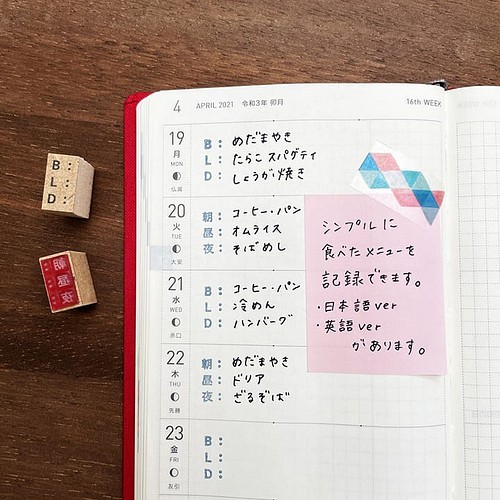 4 APRIL 2021 令和3年 卯月 16th WEEK
19 月 MON 仏滅
B: めだまやき
L: たらこスパゲティ
D: しょうが焼き
20 火 TUE 大安
朝: コーヒー・パン
昼: オムライス
夜: そばめし
21 水 WED 赤口
B: コーヒー・パン
L: 冷めん
D: ハンバーグ
22 木 THU 先勝
朝: めだまやき
昼: ドリア
夜: ざるそば
23 金 FRI 友引
B:
L:
D:
シンプルに
食べたメニューを
記録できます。
・日本語ver
・英語ver
があります。
B:
L:
D:
朝昼夜